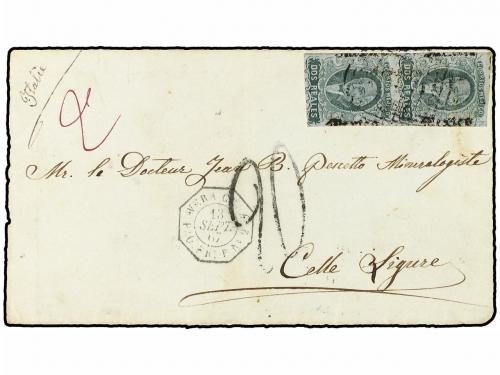 Italie
2
DOS REALES DOS REALES
Mexico Mexico
Mr. le Docteur Jean B. Pescetto Mineralogiste
VERA CRUZ
13
SEPT.
67
20
Celle Ligure